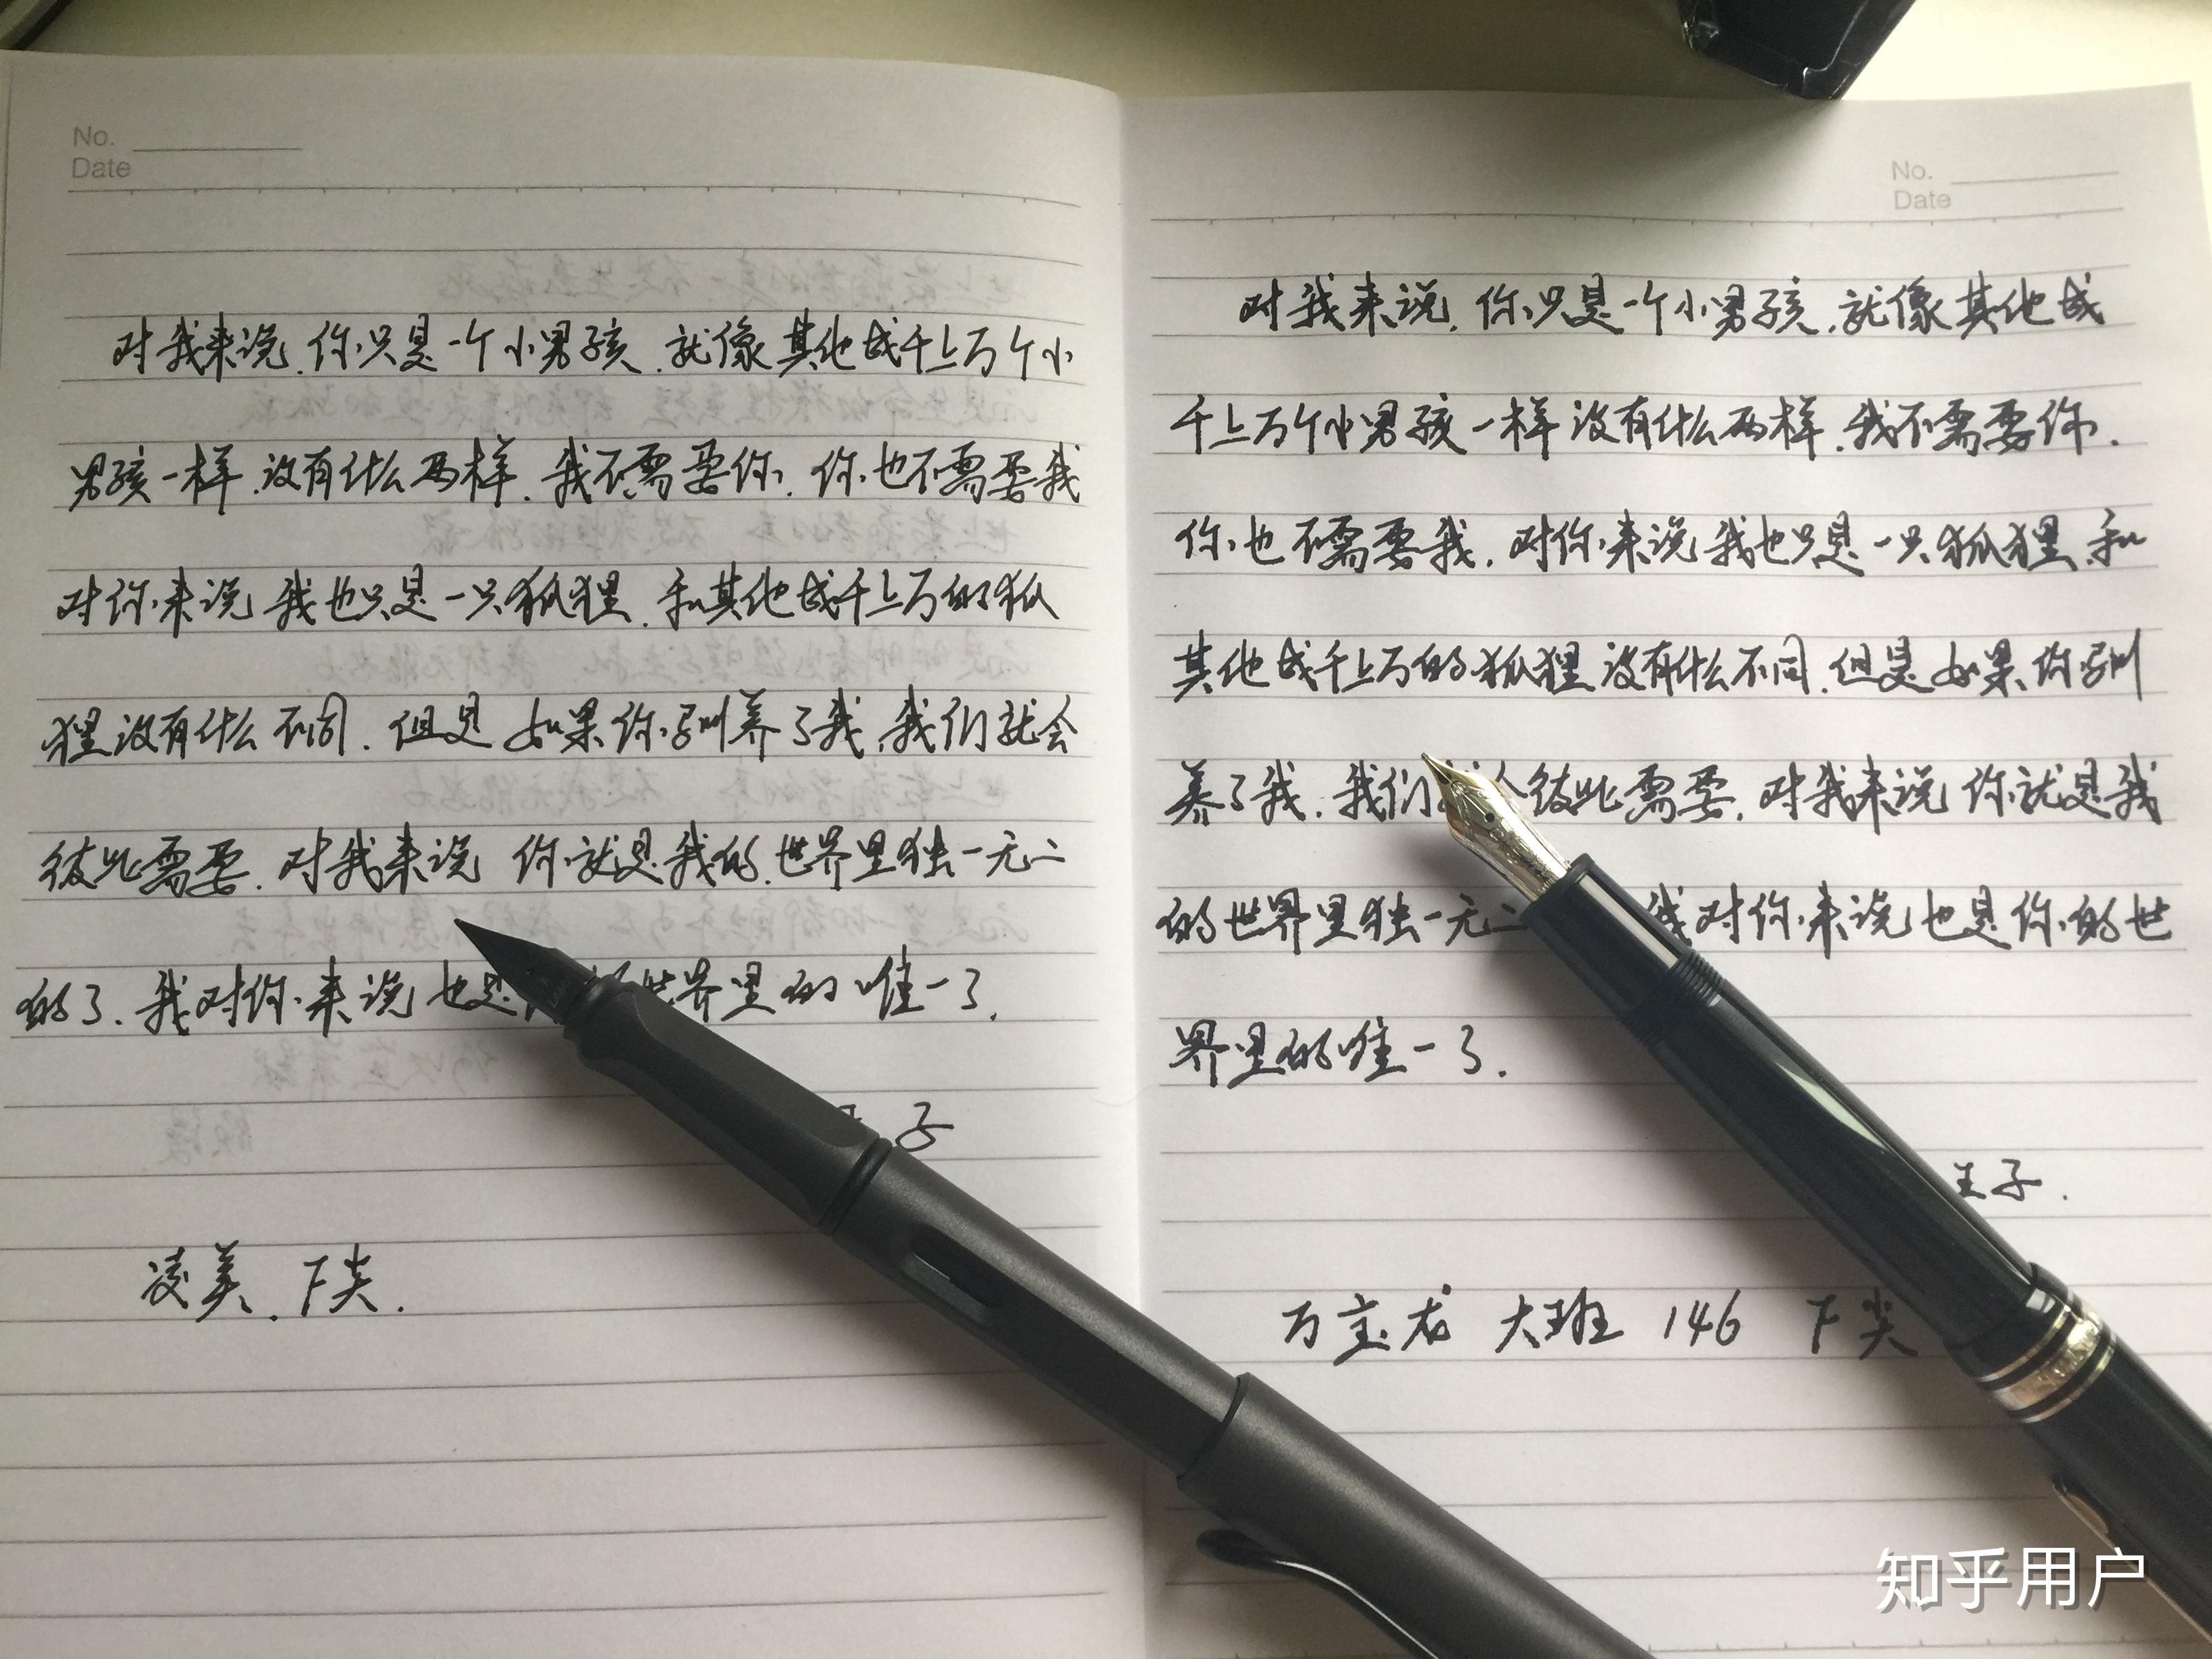 No.
Date
对我来说.你只是一个小男孩.就像其他成千上万个小
男孩一样.没有什么两样.我不需要你.你也不需要我
对你来说 我也只是一只狐狸.和其他成千上万的狐
狸没有什么不同.但是 如果你驯养了我.我们就会
彼此需要.对我来说 你就是我的.世界里独一无二
的了.我对你来说也是 世界里的唯一了.
子
凌美.F尖.
No.
Date
对我来说.你只是一个小男孩.就像其他成
千上万个小男孩一样 没有什么两样.我不需要你.
你也不需要我.对你来说 我也只是一只狐狸.和
其他成千上万的狐狸 没有什么不同.但是如果你驯
养了我.我们 彼此需要.对我来说 你就是我
的世界里独一无二 我对你来说也是你的世
界里的唯一了.
王子.
万宝龙 大班 146 F尖
知乎用户